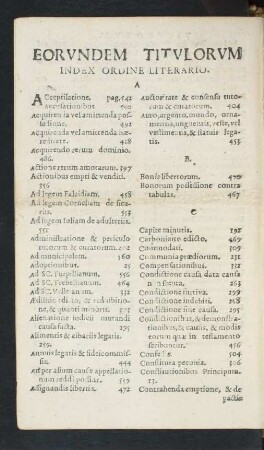 EORVNDEM TITVLORVM
INDEX ORDINE LITERARIO.
A
ACceptilatione. pag. 542
Accusationibus 560
Acquirenda vel amittenda possessione.
Acquirenda vel omittenda hæreditate. 428
Acquirendo rerum dominio. 486.
Actione rerum amotarum. 397
Actionibus empti & venditi. 356
Ad legem Falcidiam. 458
Ad legem Corneliam de
553
Ad legem Iuliam de adulteriis.
551
Administratione & periculo
tutorum & curatorum.
Ad municipalem. 560
Adoptionibus. 25
Ad SC. Turpillianum. 556
Ad SC. Trebellianum. 464
Ad SC. Velleianum. 332
Ædilitio edicto, & redhibitione,
& quanti minoris. 375
Alienatione iudicii mutandi
causa facta. 195
Alimentis & cibariis legatis.
259.
Annuis legatis & fideicommissis. 444
An per alium causæ appellationum
reddi possint. 559
Assignandis libertis. 472
Auctoritate & consensu tutorum
& curatorum. 404
Auro, argento, mundo, ornamentis,
unguentis, veste, vel
vestimentis, & statuis legatis. 453
B.
Bonis libertorum. 470
Bonorum possessione contra
tabulas. 467
C
Capite minutis. 192
Carboniano edicto. 469
Commodati. 303
Communia prædiorum. 231
Compensationibus. 331
Condictione causa data causa
non secuta. 263
Condictione furtiva. 299
Condictione indebiti. 288
Condictione sine causa. 295
Condictionibus, & demonstrationibus,
& causis, & modis
eorum quæ in testamento
scribuntur. 456
Confessis. 504
Constituta pecunia. 306
Constitutionibus Principum.
Contrahenda emptione, & de
pactis